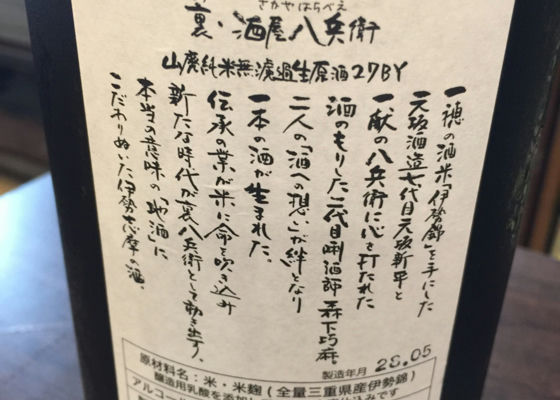 さかやはちべえ
裏・酒屋八兵衛
山廃純米無濾過生原酒27BY
一穂の酒米「伊勢錦」を手にした
元坂酒造七代目元坂新平と
一献の八兵衛に心を打たれた
酒のもりした二代目唎酒師 森下巧麻。
二人の「酒への想い」が絆となり
一本の酒が生まれた。
伝承の業が米に命を吹き込み
新たな時代が裏八兵衛として動き出す。
本当の意味の「地酒」に
こだわりぬいた伊勢志摩の酒。
製造年月 28.05
原材料名：米・米麹(全量三重県産伊勢錦)
醸造用乳酸を添加
アルコー